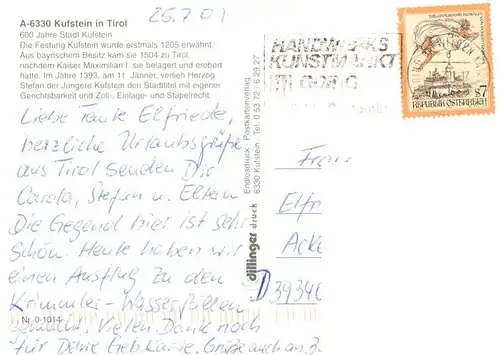 25.7.01
A-6330 Kufstein in Tirol
600 Jahre Stadt Kufstein
Die Festung Kufstein wurde erstmals 1205 erwähnt.
Aus bayrischem Besitz kam sie 1504 zu Tirol,
nachdem Kaiser Maximilian I. sie belagert und erobert
hatte. Im Jahre 1393, am 11. Jänner, verlieh Herzog
Stefan der Jüngere Kufstein den Stadttitel mit eigener
Gerichtsbarkeit und Zoll-, Einlage- und Stapelrecht.
Liebe Tante Elfriede,
herzliche Urlaubsgrüße
aus Tirol senden Dir
Carola, Stefan u. Eltern
Die Gegend hier ist sehr
schön. Heute haben wir
einen Ausflug zu den
Krimmler-Wasserfällen
gemacht. Vielen Dank noch
für Deine Geb.karte. Grüße auch an
Nr. 0-1014
Endlosdruck · Postkartenverlag
6330 Kufstein · Tel. 0 53 72 / 6 29 27
dillinger druck
HANDWERKS
KUNSTMARKT
GOING
REPUBLIK ÖSTERREICH
S7
Frau
Elfr
Acke
D 3934